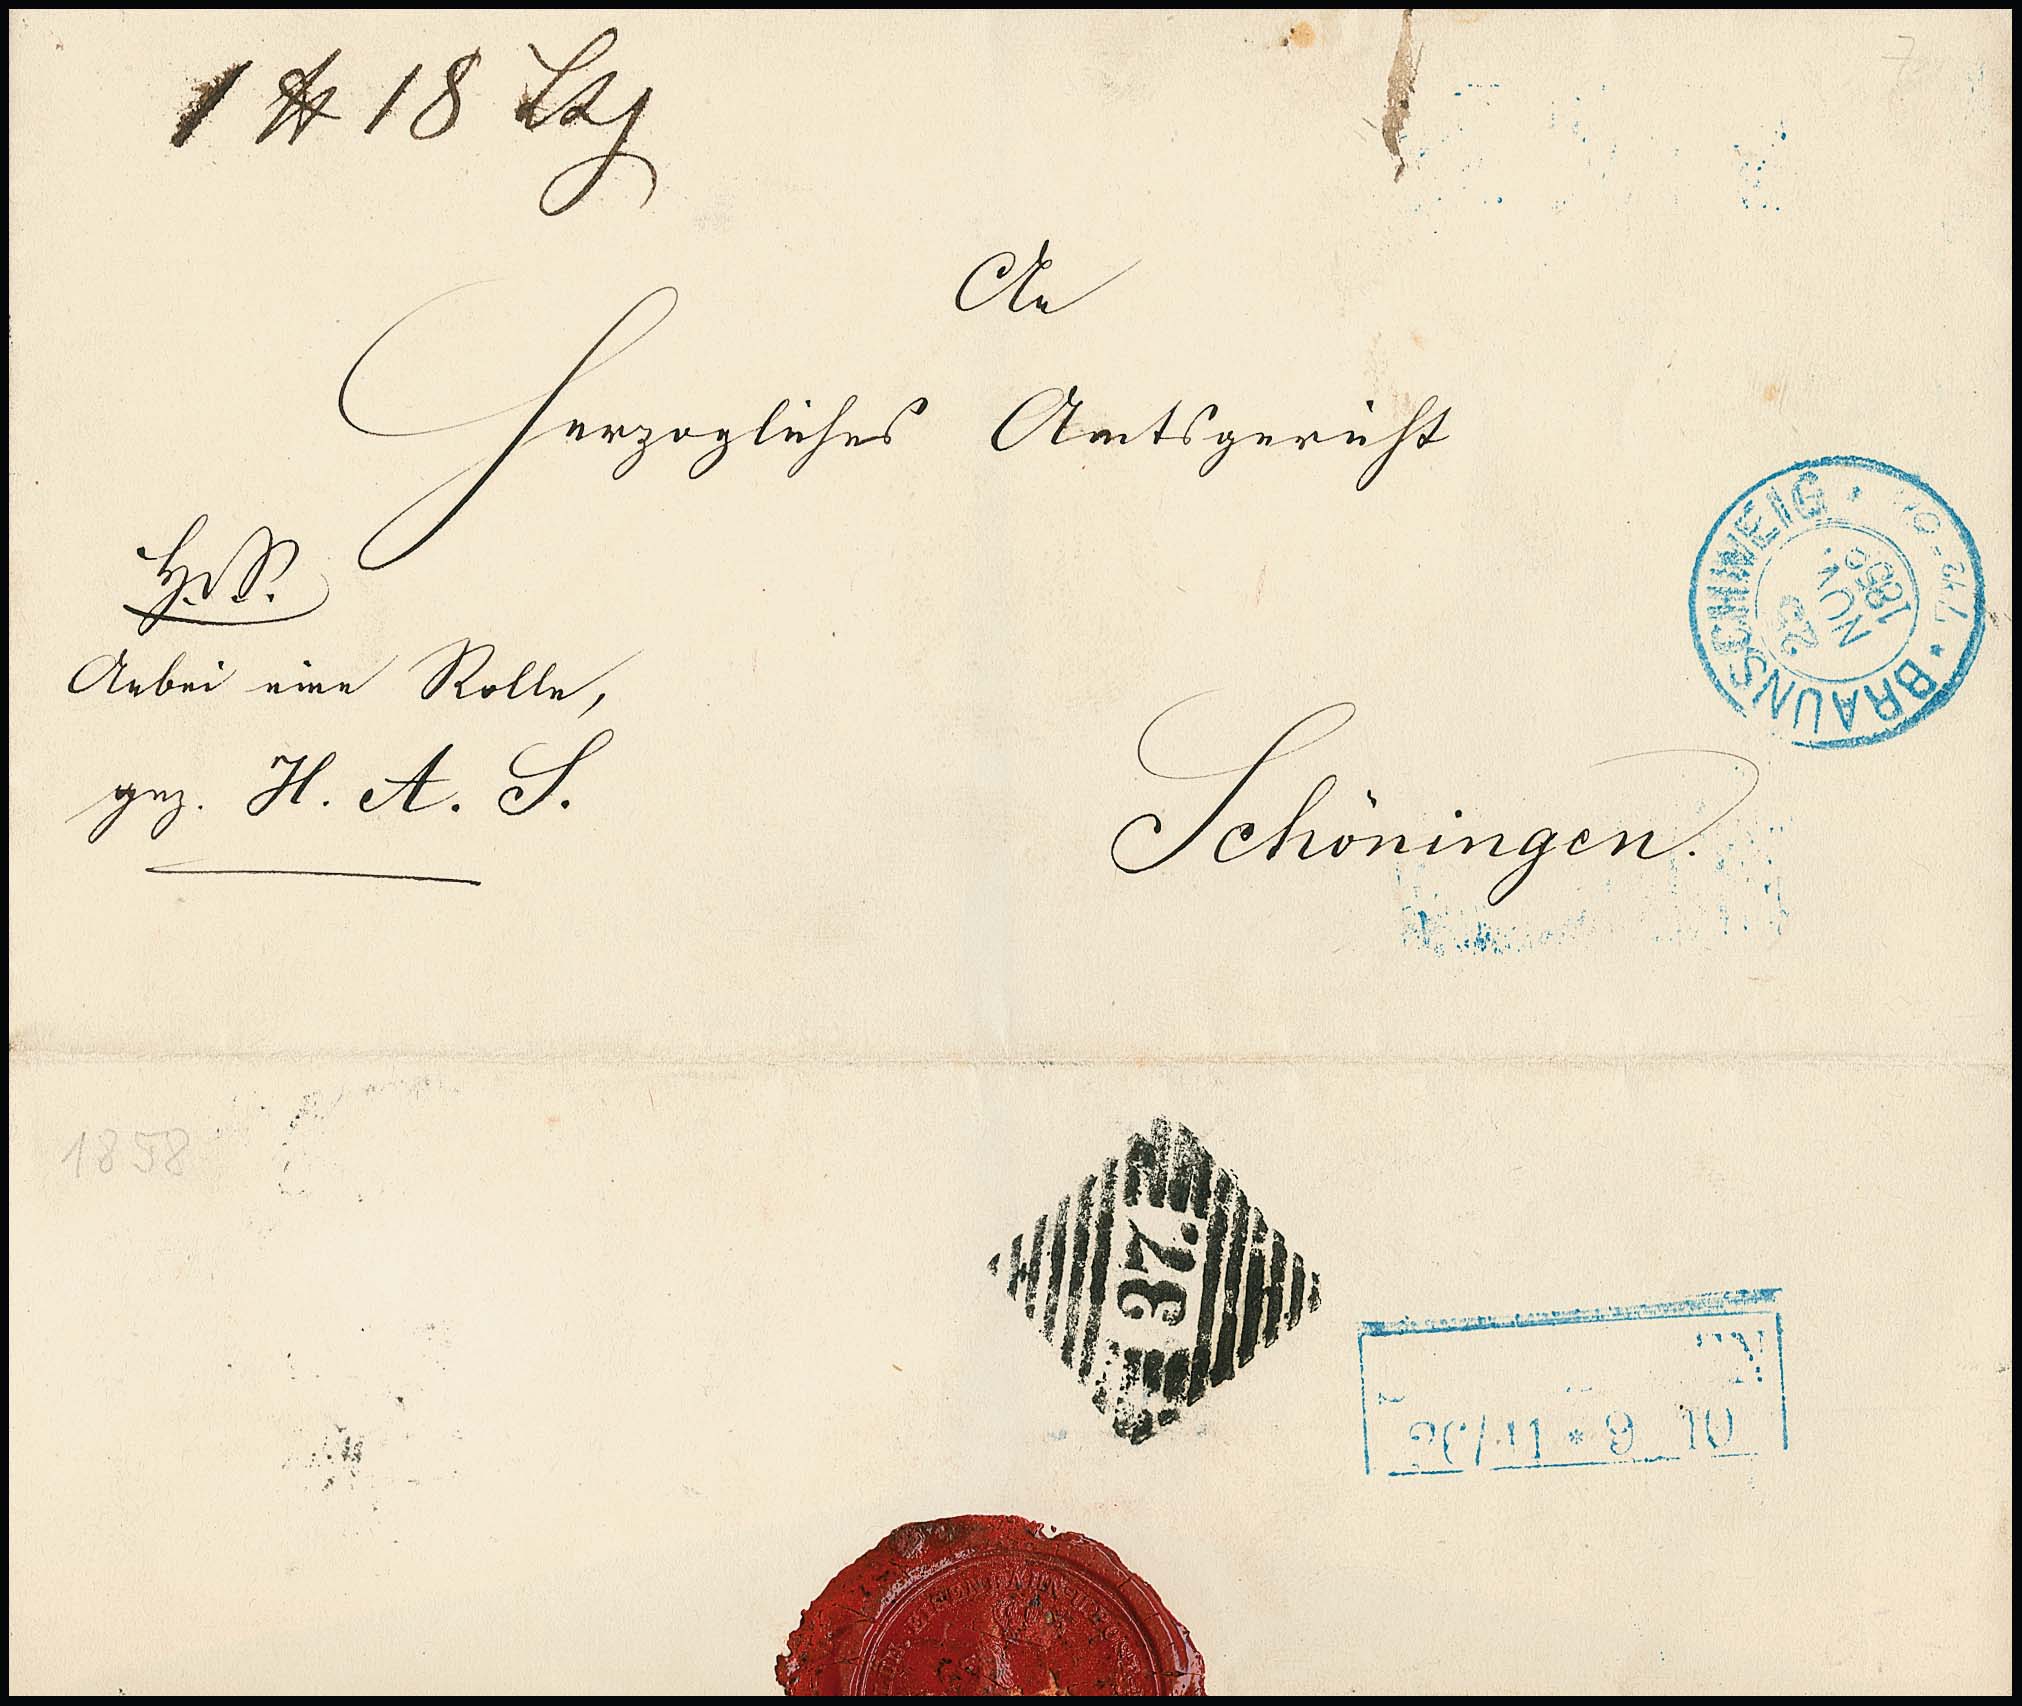 1 ℔ 18 Ltg
An
Herzogliches Amtsgericht
H. S.
Anbei eine Rolle,
gez. H. A. S.
Schöningen.
BRAUNSCHWEIG
25
NOV.
185
1858
37.
26/11 * 9 10